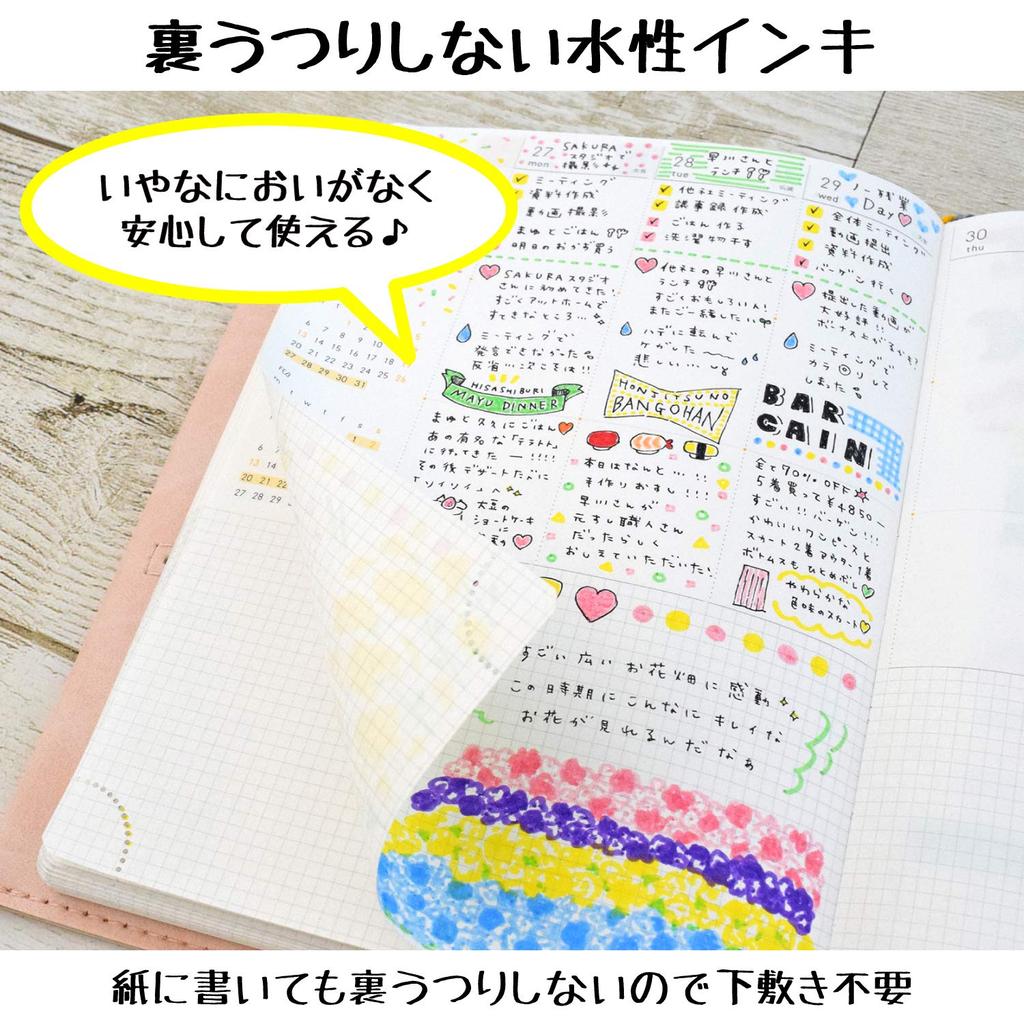 裏うつりしない水性インキ
いやなにおいがなく
安心して使える♪
27
mon
SAKURA
スタジオで
撮影
ミーティング
資料作成
動画撮影
まゆとごはん
明日のおかず買う
SAKURAスタジオ
さんに初めてきた!
すごくアットホームで
すてきなところ…
ミーティングで
発言できなかった
反省…次こそは!!
HISASHIBURI
MAYU DINNER
まゆと久々にごはん
あの有名な「テラトト」
に行ってきたー!!!!
その後デザートたべに
大豆の
ショートケーキ
に
28
tue
早川さんと
ランチ
他社ミーティング
議事録作成
ごはん作る
洗濯物干す
他社の早川さんと
ランチ
すごくおもしろい人!
またご一緒したい
ハデに転んで
ケガした
悲しい…
HONJITSU NO
BANGOHAN
本日はなんと…
手作りおすし!!!
早川さんが
元すし職人さん
だったらしく
おしえていただいた!
29
wed
ノー残業
Day
全体ミーティング
動画提出
資料作成
バーゲン行く
提出した動画が
大好評!!
ボーナス上がるかも?
ミーティングで
カラ回りして
しまった
BAR
GAIN
全て90% OFF
5着買って¥4850ー
すごい!!バーゲン!!!
かわいいワンピースと
スカート2着アウター1着
ボトムスもひとめぼれ
やわらかな
色味のスカート
30
thu
すごい広いお花畑に感動
この時期にこんなにキレイな
お花が見れるんだなぁ
6 7 8 9 10
13 14 15 16 17 18
20 21 22 23 24 25 26
27 28 29 30 31
w t f s s
1 2
6
13 14
20 21 22
27 28 29
紙に書いても裏うつりしないので下敷き不要